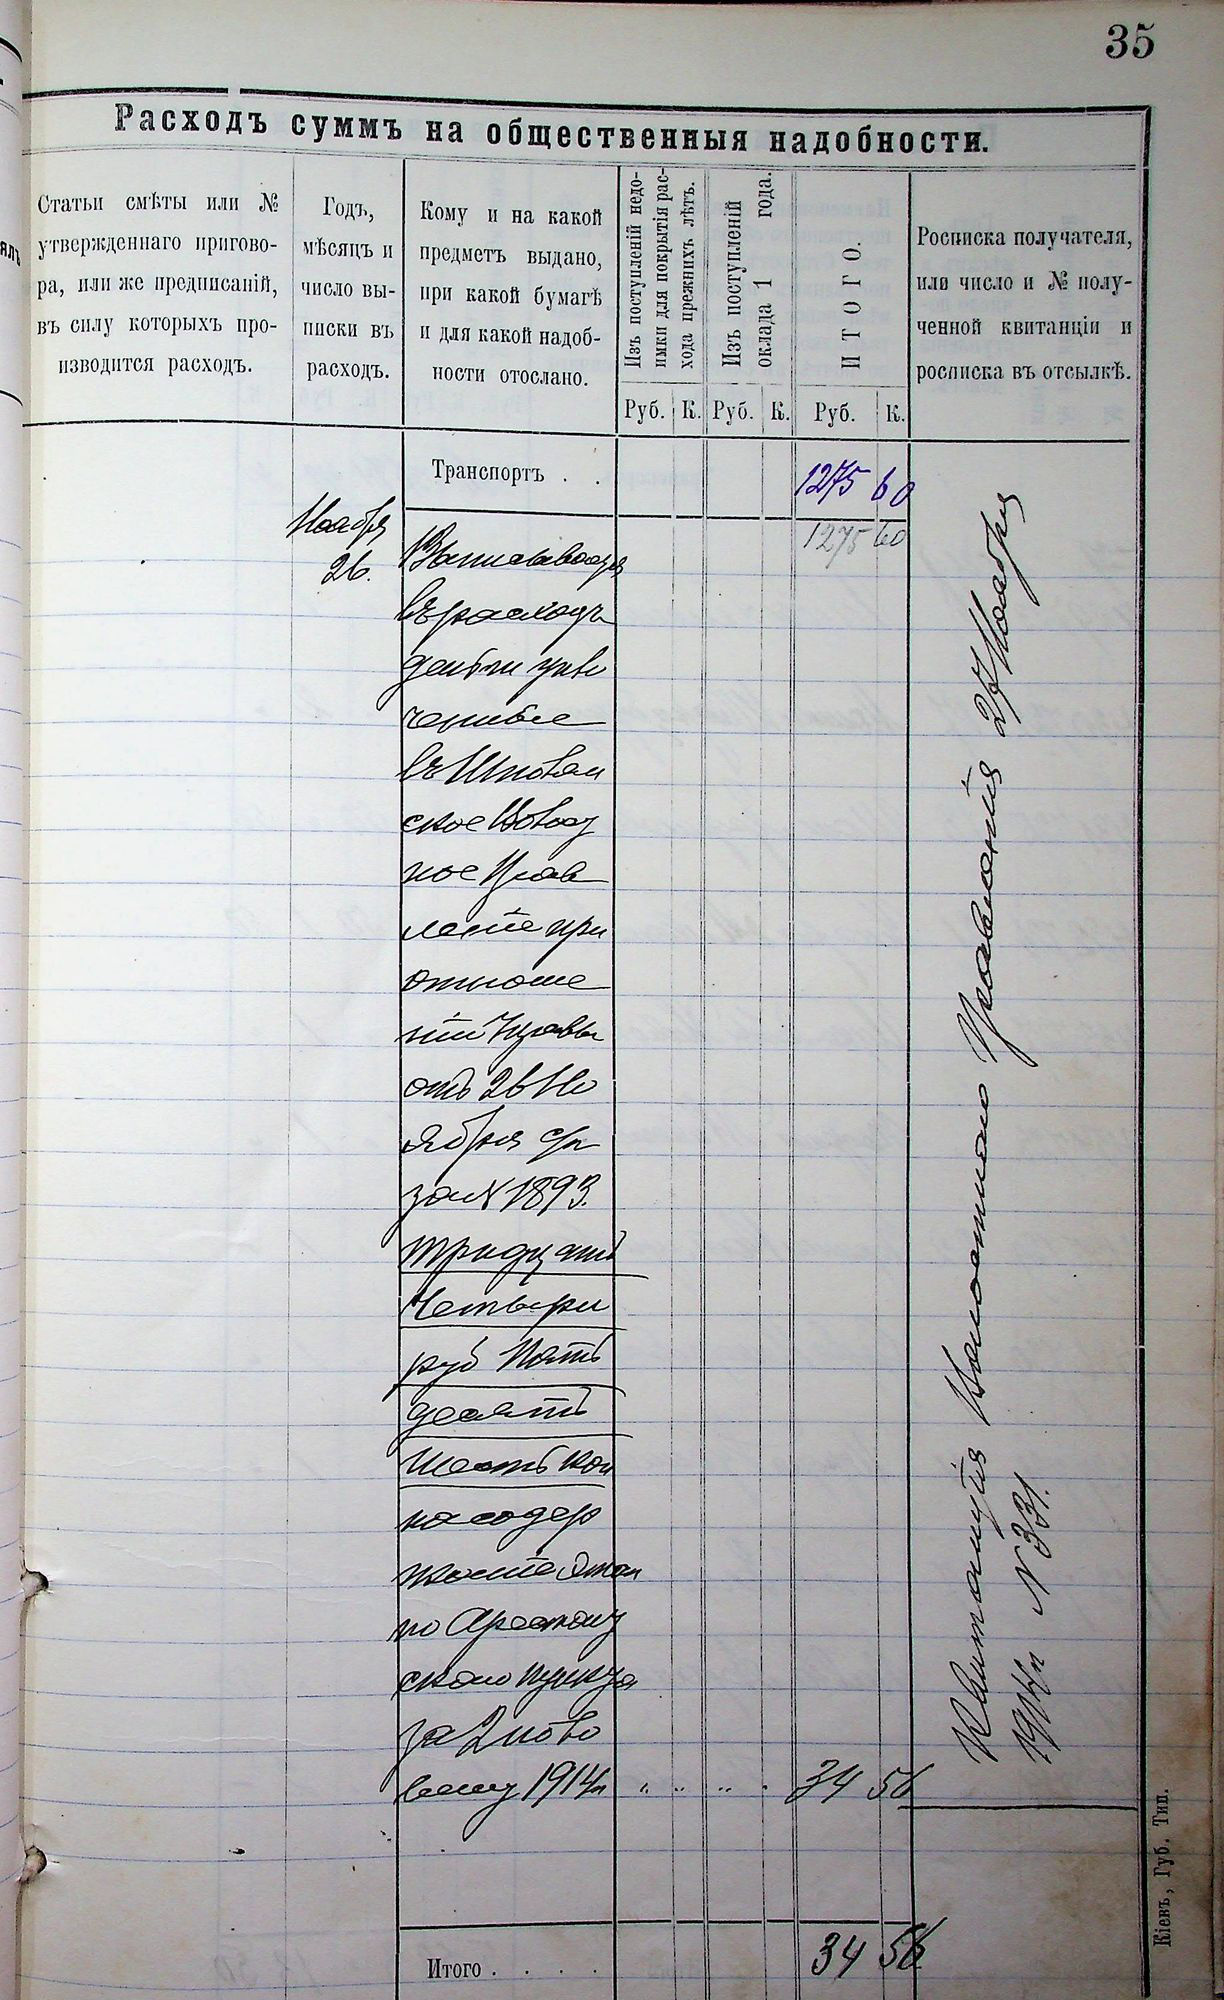 35
Расходъ суммъ на общественныя надобности.
Статьи смѣты или №
утвержденнаго пригово-
ра, или же предписаній,
въ силу которыхъ про-
изводится расходъ.
Годъ,
мѣсяцъ и
число вы-
писки въ
расходъ.
Кому и на какой
предметъ выдано,
при какой бумагѣ
и для какой надоб-
ности отослано.
Изъ поступленій недо-
имки для покрытія рас-
хода прежнихъ лѣтъ.
Изъ поступленій
оклада 1 года.
ИТОГО.
Росписка получателя,
или число и № полу-
ченной квитанціи и
росписка въ отсылкѣ.
Руб. К. Руб. К. Руб. К.
Транспортъ . . 1275 60
1275 60
Ноября
26.
Записываются
въ расходъ
деньги
въ
ское Волост
ное Прав
леніе при
отноше
ніи Управы
отъ 26 Но
ября с/г
за № 1893.
тридцать
четыри
руб Пять
десять
шесть коп
на содер
жаніе
по Арестому
скаго пункта
за 2 поло
вину 1914г " " " . 34 56
Квитанція Волостного Правленія 27 Ноября
1914г № 331.
Итого . . . . 34 56
Кіевъ, Губ. Тип.